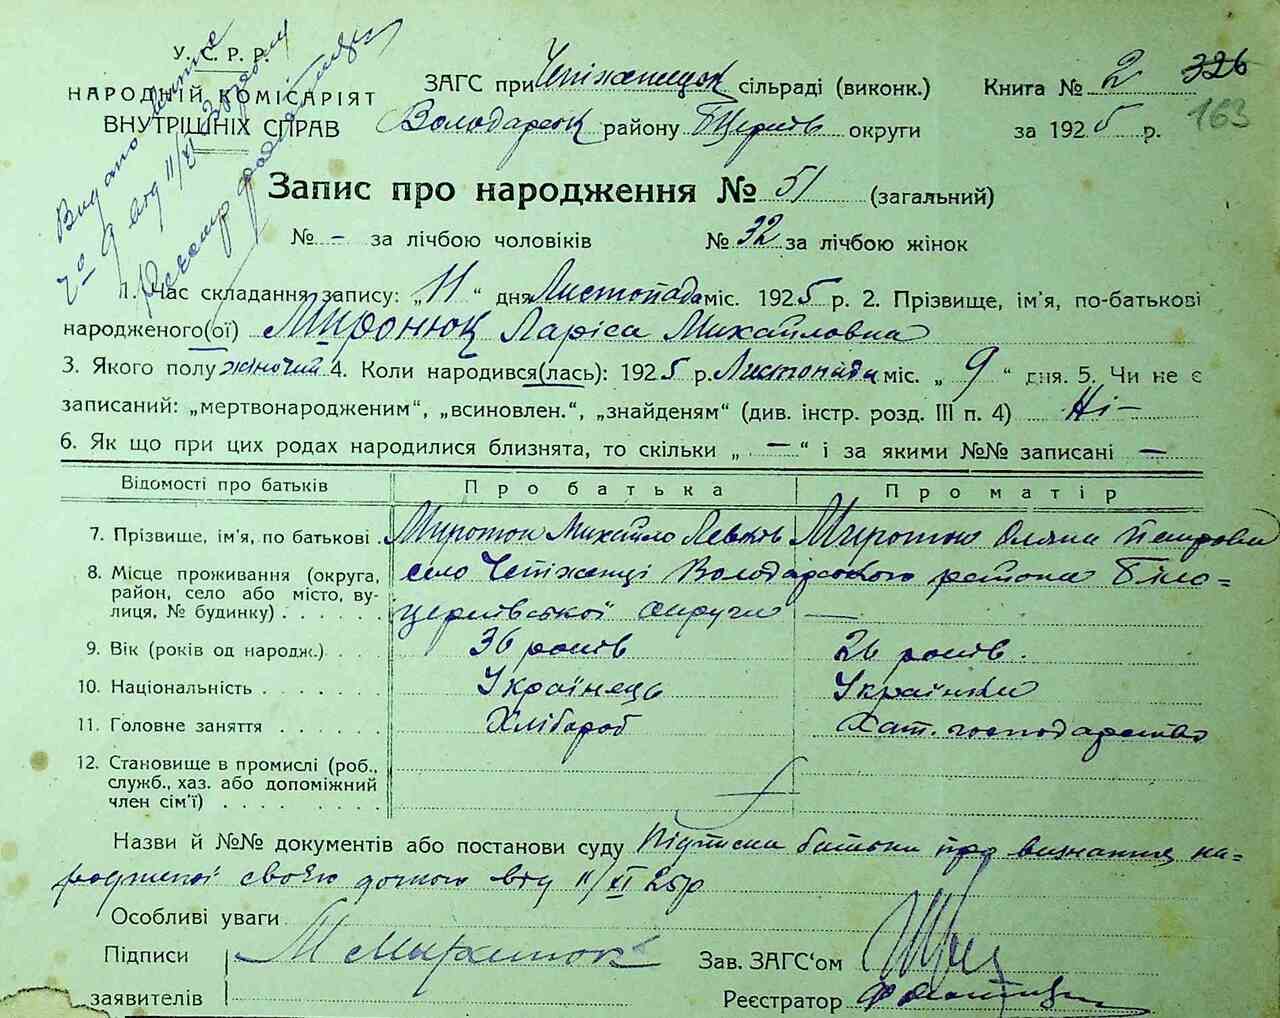 У. С. Р. Р.
НАРОДНІЙ КОМІСАРІЯТ
ВНУТРІШНІХ СПРАВ
ЗАГС при сільраді (виконк.)
Книга № 2 326
Володарськ району Бцерків округи за 1925 р. 163
Видано
від 11/XI
Запис про народження № 51 (загальний)
№ - за лічбою чоловіків № 32 за лічбою жінок
1. Час складання запису: „11“ дня Листопада міс. 1925 р. 2. Прізвище, ім'я, по-батькові
народженого(ої) Миронюк Ларіса Михайловна
3. Якого полу жіночий 4. Коли народився(лась): 1925 р. Листопада міс. „9“ дня. 5. Чи не є
записаний: „мертвонародженим“, „всиновлен.“, „знайденям“ (див. інстр. розд. III п. 4) Ні-
6. Як що при цих родах народилися близнята, то скільки „—“ і за якими №№ записані —
Відомості про батьків Про батька Про матір
7. Прізвище, ім'я, по батькові Михайло Левків Олена Петровна
8. Місце проживання (округа, село Чепіженці Володарського района Біло=
район, село або місто, ву-
лиця, № будинку) церківської округи —
9. Вік (років од народж.) 36 років 26 років.
10. Національність Українець Українка
11. Головне заняття Хлібороб Хат. господарство
12. Становище в промислі (роб.,
служб., хаз. або допоміжний
член сім'ї)
Назви й №№ документів або постанови суду Підписка батька про визнання на=
родженої своєю дочкою від 11/XI 25р
Особливі уваги
Підписи
заявителів
Зав. ЗАГС'ом
Реєстратор